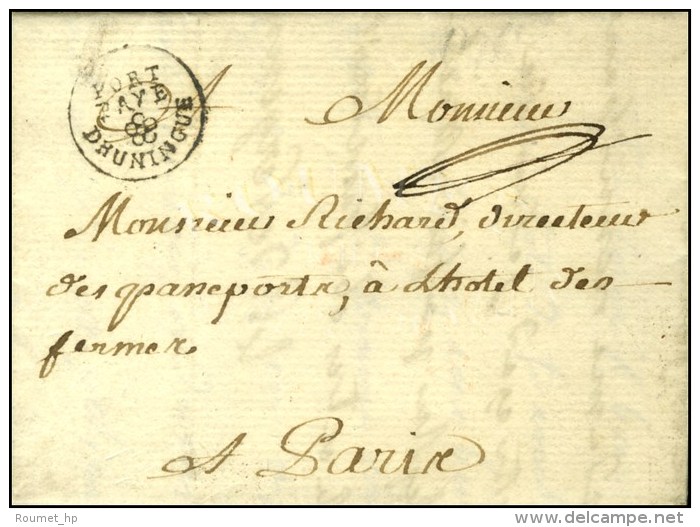 PORT
PAYÉ
DHUNINGUE
A Monsieur
Monsieur Richard, directeur
des transports, à Lhotel des
fermes
A Paris
Roumet_hp
delcampe.net